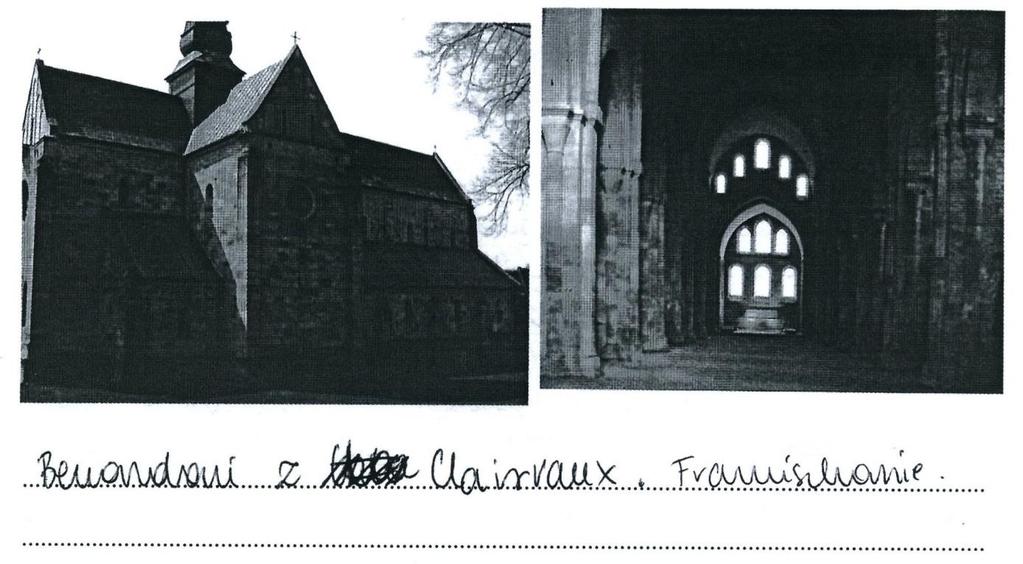 Benardoni z Clairvaux. Franciszkanie.